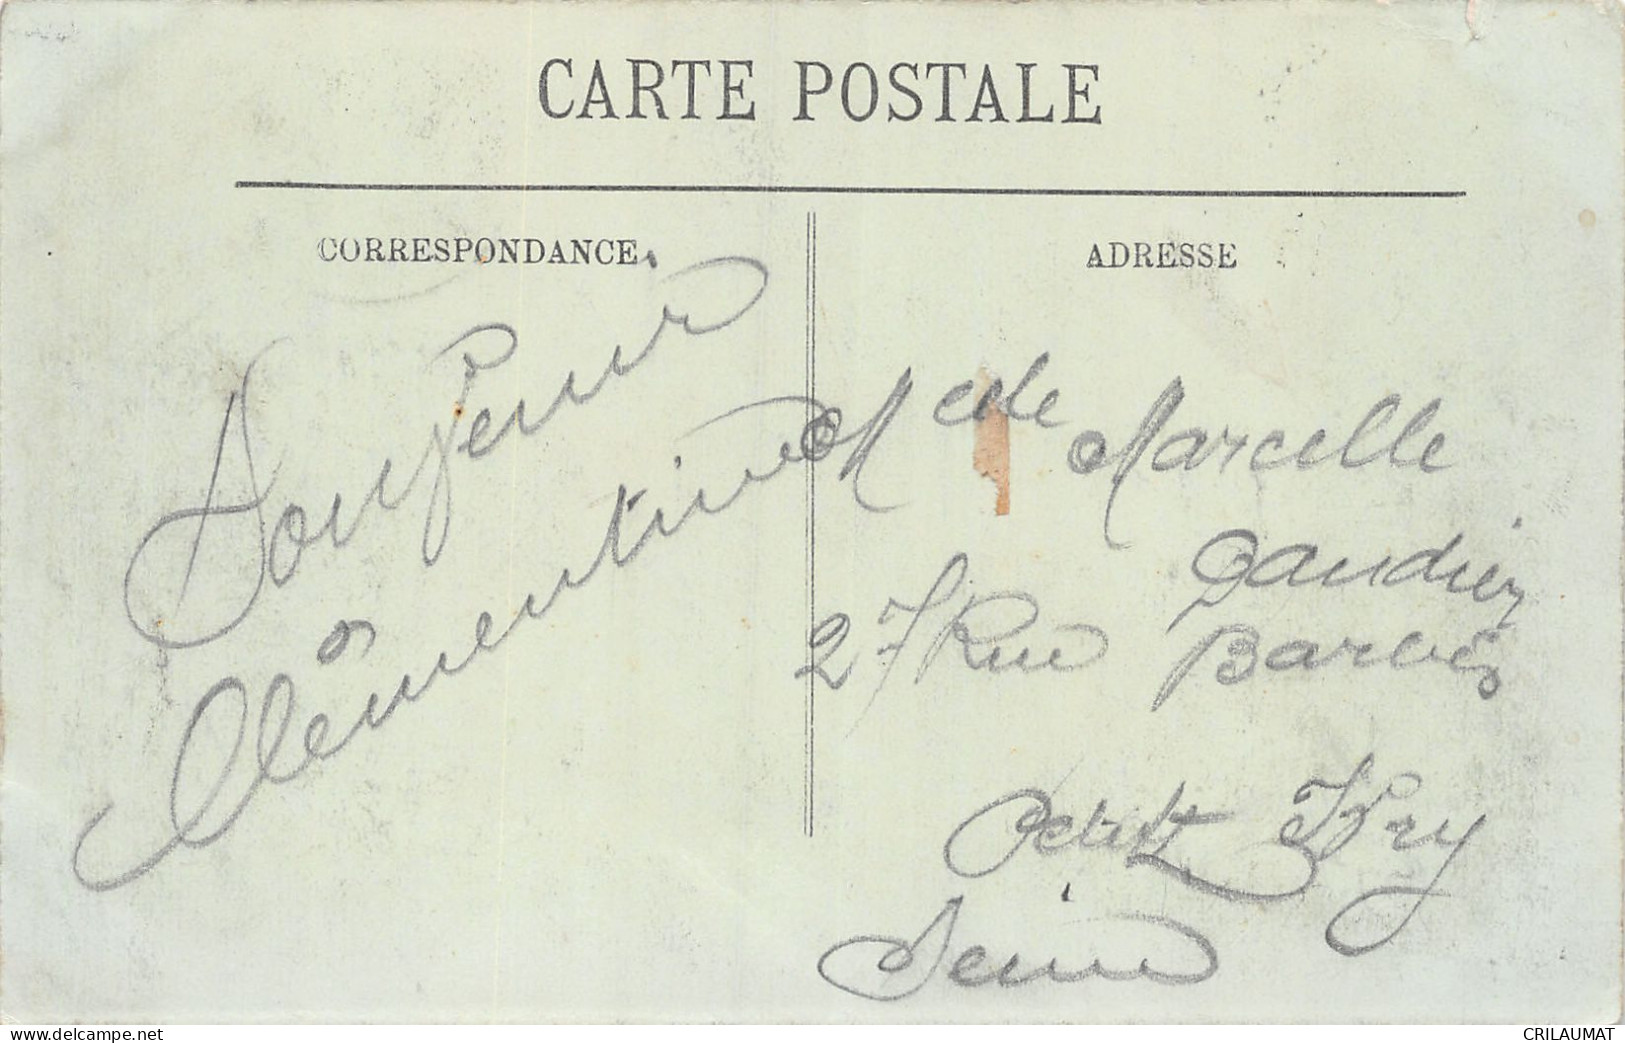 CARTE POSTALE
CORRESPONDANCE
ADRESSE
Souvenir
Clémentine
Melle Marcelle
27 Rue Barbès
Petit Ivry
Seine
www.delcampe.net
CRILAUMAT